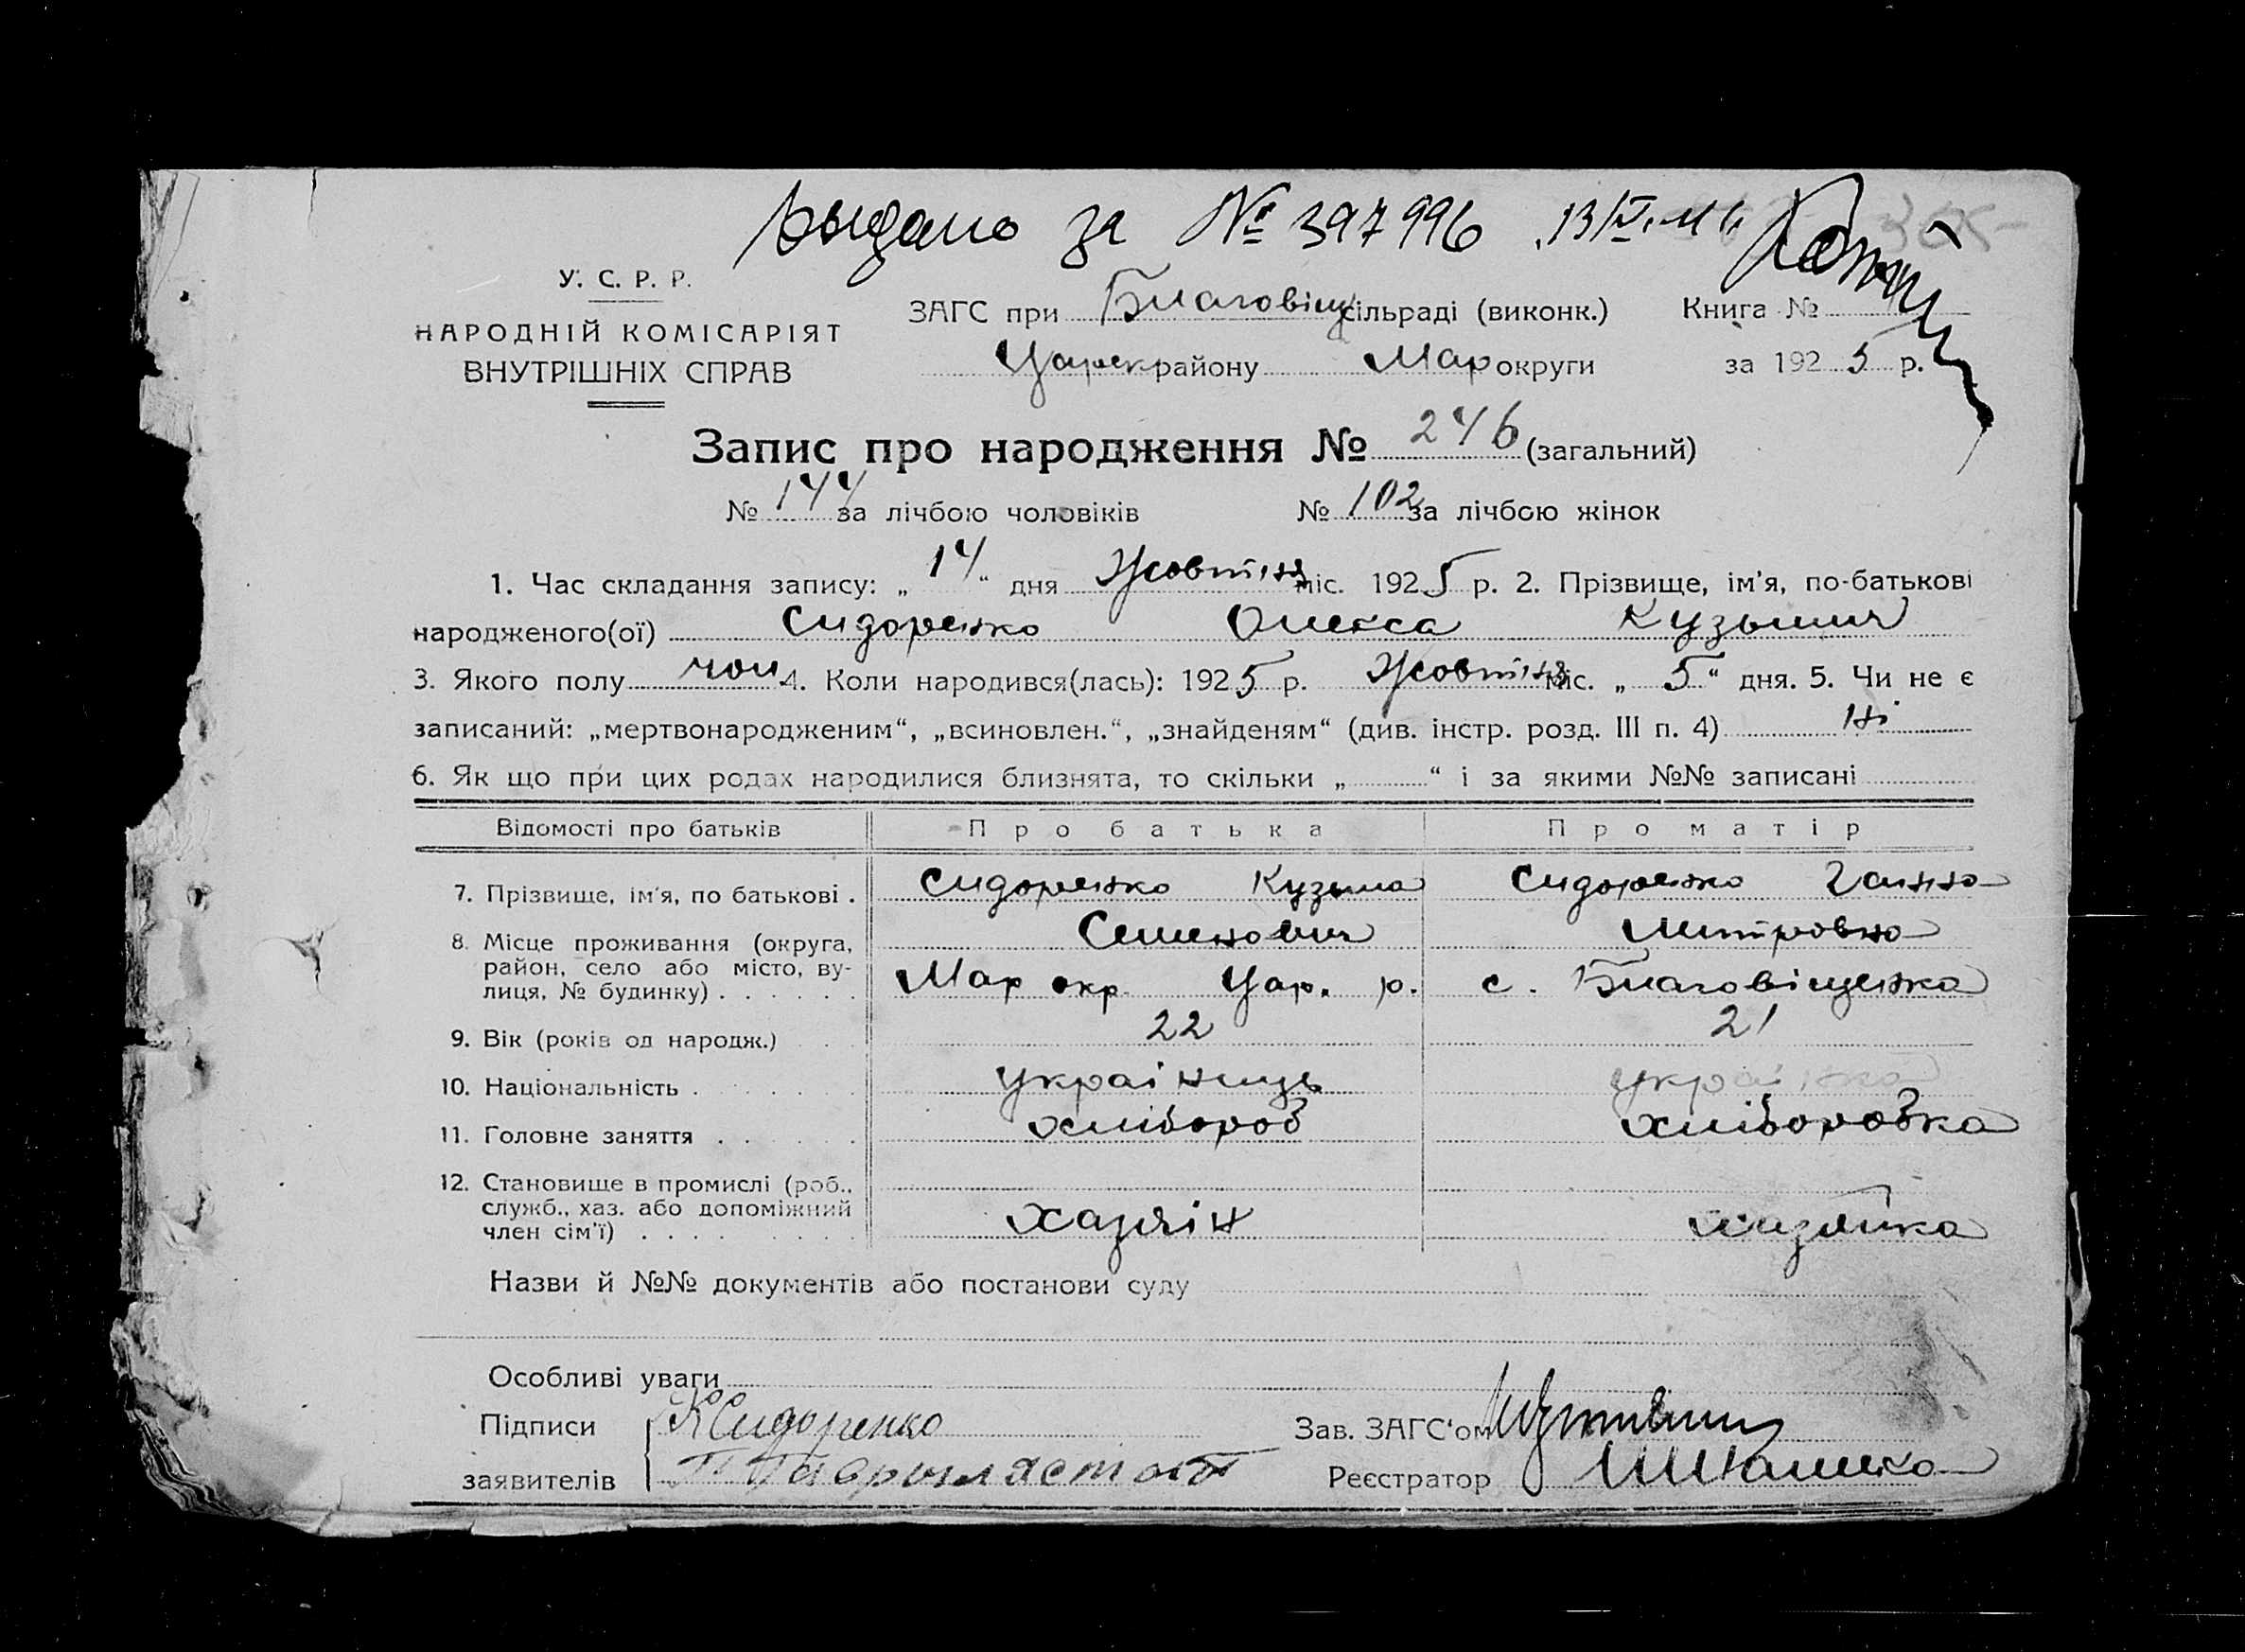 Выдано за № 397996
У. С. Р. Р.
НАРОДНІЙ КОМІСАРІЯТ
ВНУТРІШНІХ СПРАВ
ЗАГС при Благовіщ сільраді (виконк.) Книга №
Царек району Мар округи за 1925 р.
Запис про народження № 246 (загальний)
№ 144 за лічбою чоловіків № 102 за лічбою жінок
1. Час складання запису: „14“ дня Жовтня міс. 1925 р. 2. Прізвище, ім'я, по-батькові
народженого(ої) Сидоренко Олекса Кузьмич
3. Якого полу чол 4. Коли народився(лась): 1925 р. Жовтня міс. „5“ дня. 5. Чи не є
записаний: „мертвонародженим“, „всиновлен.“, „знайденям“ (див. інстр. розд. III п. 4) Ні
6. Як що при цих родах народилися близнята, то скільки „ “ і за якими №№ записані
Відомості про батьків Про батька Про матір
7. Прізвище, ім'я, по батькові . Сидоренко Кузьма Сидоренко Ганна
Семенович Митровна
8. Місце проживання (округа, район, село або місто, ву-
лиця, № будинку) . . . . . . Мар окр Цар. р. с. Благовіщенка
9. Вік (років од народж.) 22 21
10. Національність . украінець украінка
11. Головне заняття . . хлібороб хлібооробка
12. Становище в промислі (роб.,
служб., хаз. або допоміжний
член сім'ї) . . . . хазяін хазяйка
Назви й №№ документів або постанови суду
Особливі уваги
Підписи К Сидоренко Зав. ЗАГС'ом
заявителів Реєстратор